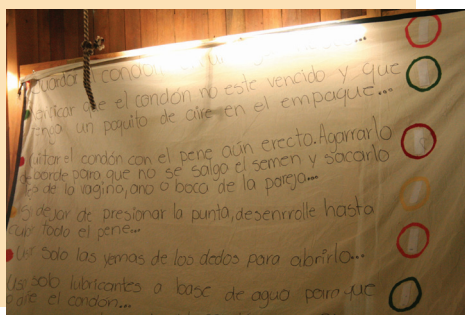 el condón
que el condón no este vencido y que
un poquito de aire en el empaque...
el condón con el pene aún erecto. Agarrarlo
borde para que no se salga el semen y sacarlo
de la vagina, ano o boca de la pareja...
dejar de presionar la punta, desenrrolle hasta
todo el pene...
Usar solo las yemas de los dedos para abrirlo...
Usar solo lubricantes a base de agua para que
el condón...